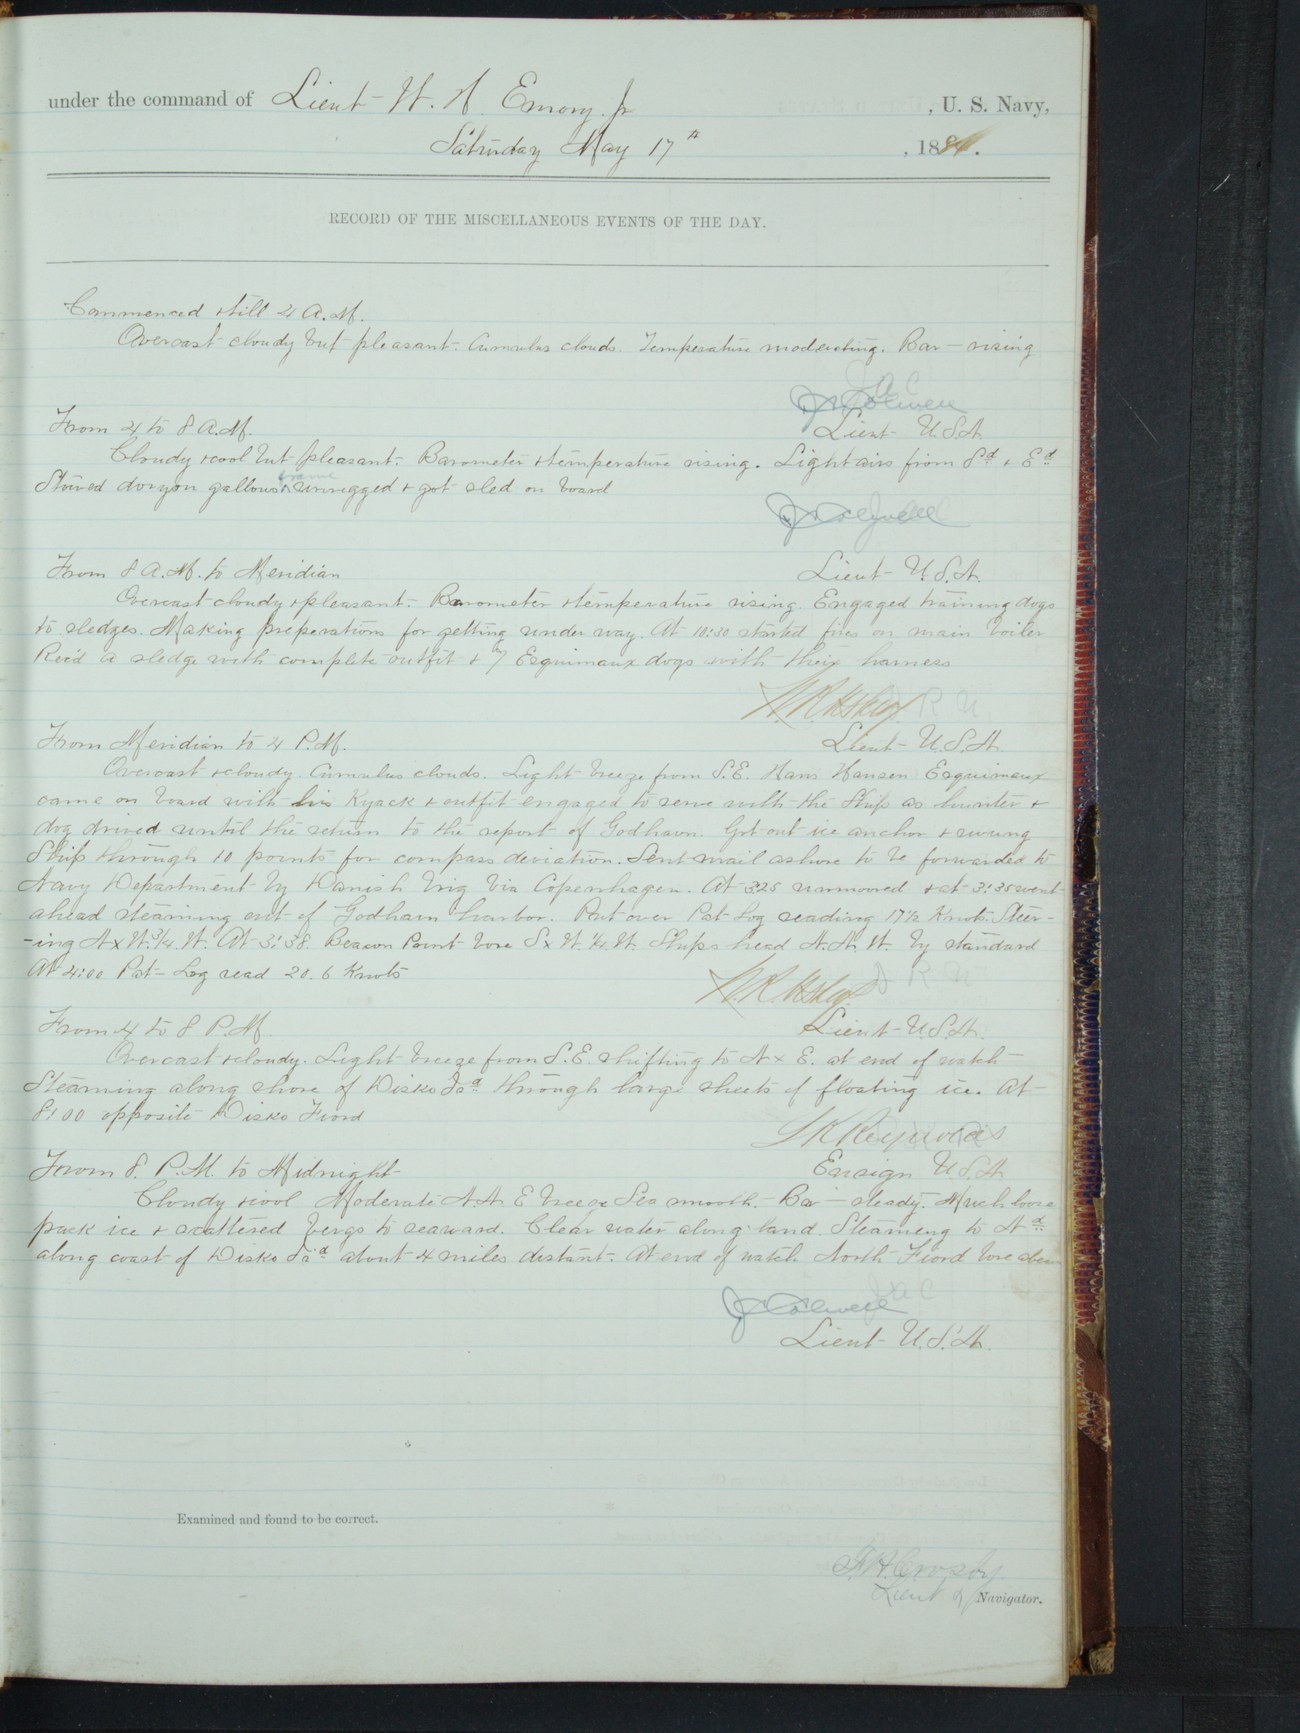 under the command of Lieut W. H. Emory. Jr , U. S. Navy,
Saturday May 17th , 1884.
RECORD OF THE MISCELLANEOUS EVENTS OF THE DAY.
Commenced + till 4 A.M.
Overcast cloudy but pleasant. Cumulus clouds. Temperature moderating. Bar - rising
J A C
J. Colwell
Lieut U.S.N.
From 4 to 8 A.M.
Cloudy + cool but pleasant. Barometer + temperature rising. Light airs from Sd + Ed
frame
Stowed gallows ^ unrigged + got sled on board
J Colwell
From 8 A.M. to Meridian
Lieut U.S.N.
Overcast cloudy + pleasant. Barometer + temperature rising. Engaged training dogs
to sledges. Making preperations for getting under way. At 10:30 started fires on main boiler
Rec'd a sledge with complete outfit + 7 Esquimaux dogs with their harness
N. R. Usher N R U
From Meridian to 4 P.M.
Lieut U.S.N.
Overcast + cloudy. Cumulus clouds. Light breeze from S.E. Hans Hansen Esquimaux
came on board with his Kyack + outfit engaged to serve with the Ship as hunter +
dog driver until the return to the report of Godhavn. Got out ice anchor + swung
Ship through 10 points for compass deviation. Sent mail ashore to be forwarded to
Navy Department by Danish brig via Copenhagen. At 3:25 unmoored + at 3:35 went
ahead steaming out of Godhavn harbor. Put over Pat Log reading 17½ Knots. Steer-
-ing N x W. ¾ W. At 3:38 Beacon Point bore S x W. ¼ W. Ships head N.N.W. by standard
At 4:00 Pat- Log read 20.6 Knots
N. R. Usher N R U
From 4 to 8 P.M.
Lieut U.S.N.
Overcast + cloudy. Light breeze from S.E. shifting to N x E. at end of watch
Steaming along shore of Disko Isd through large sheets of floating ice. At
8:00 opposite Disko Fiord
L K Reynolds
From 8. P.M. to Midnight
Ensign U.S.N.
Cloudy + cool Moderate N.N.E breeze Sea smooth. Bar - steady. Much loose
pack ice + scattered bergs to seaward. Clear water along land. Steaming to Nd
along coast of Disko Isd about 4 miles distant. At end of watch North Fiord bore abeam
J Colwell J A C
Lieut U.S.N.
Examined and found to be correct.
Crosby
Lieut & Navigator.